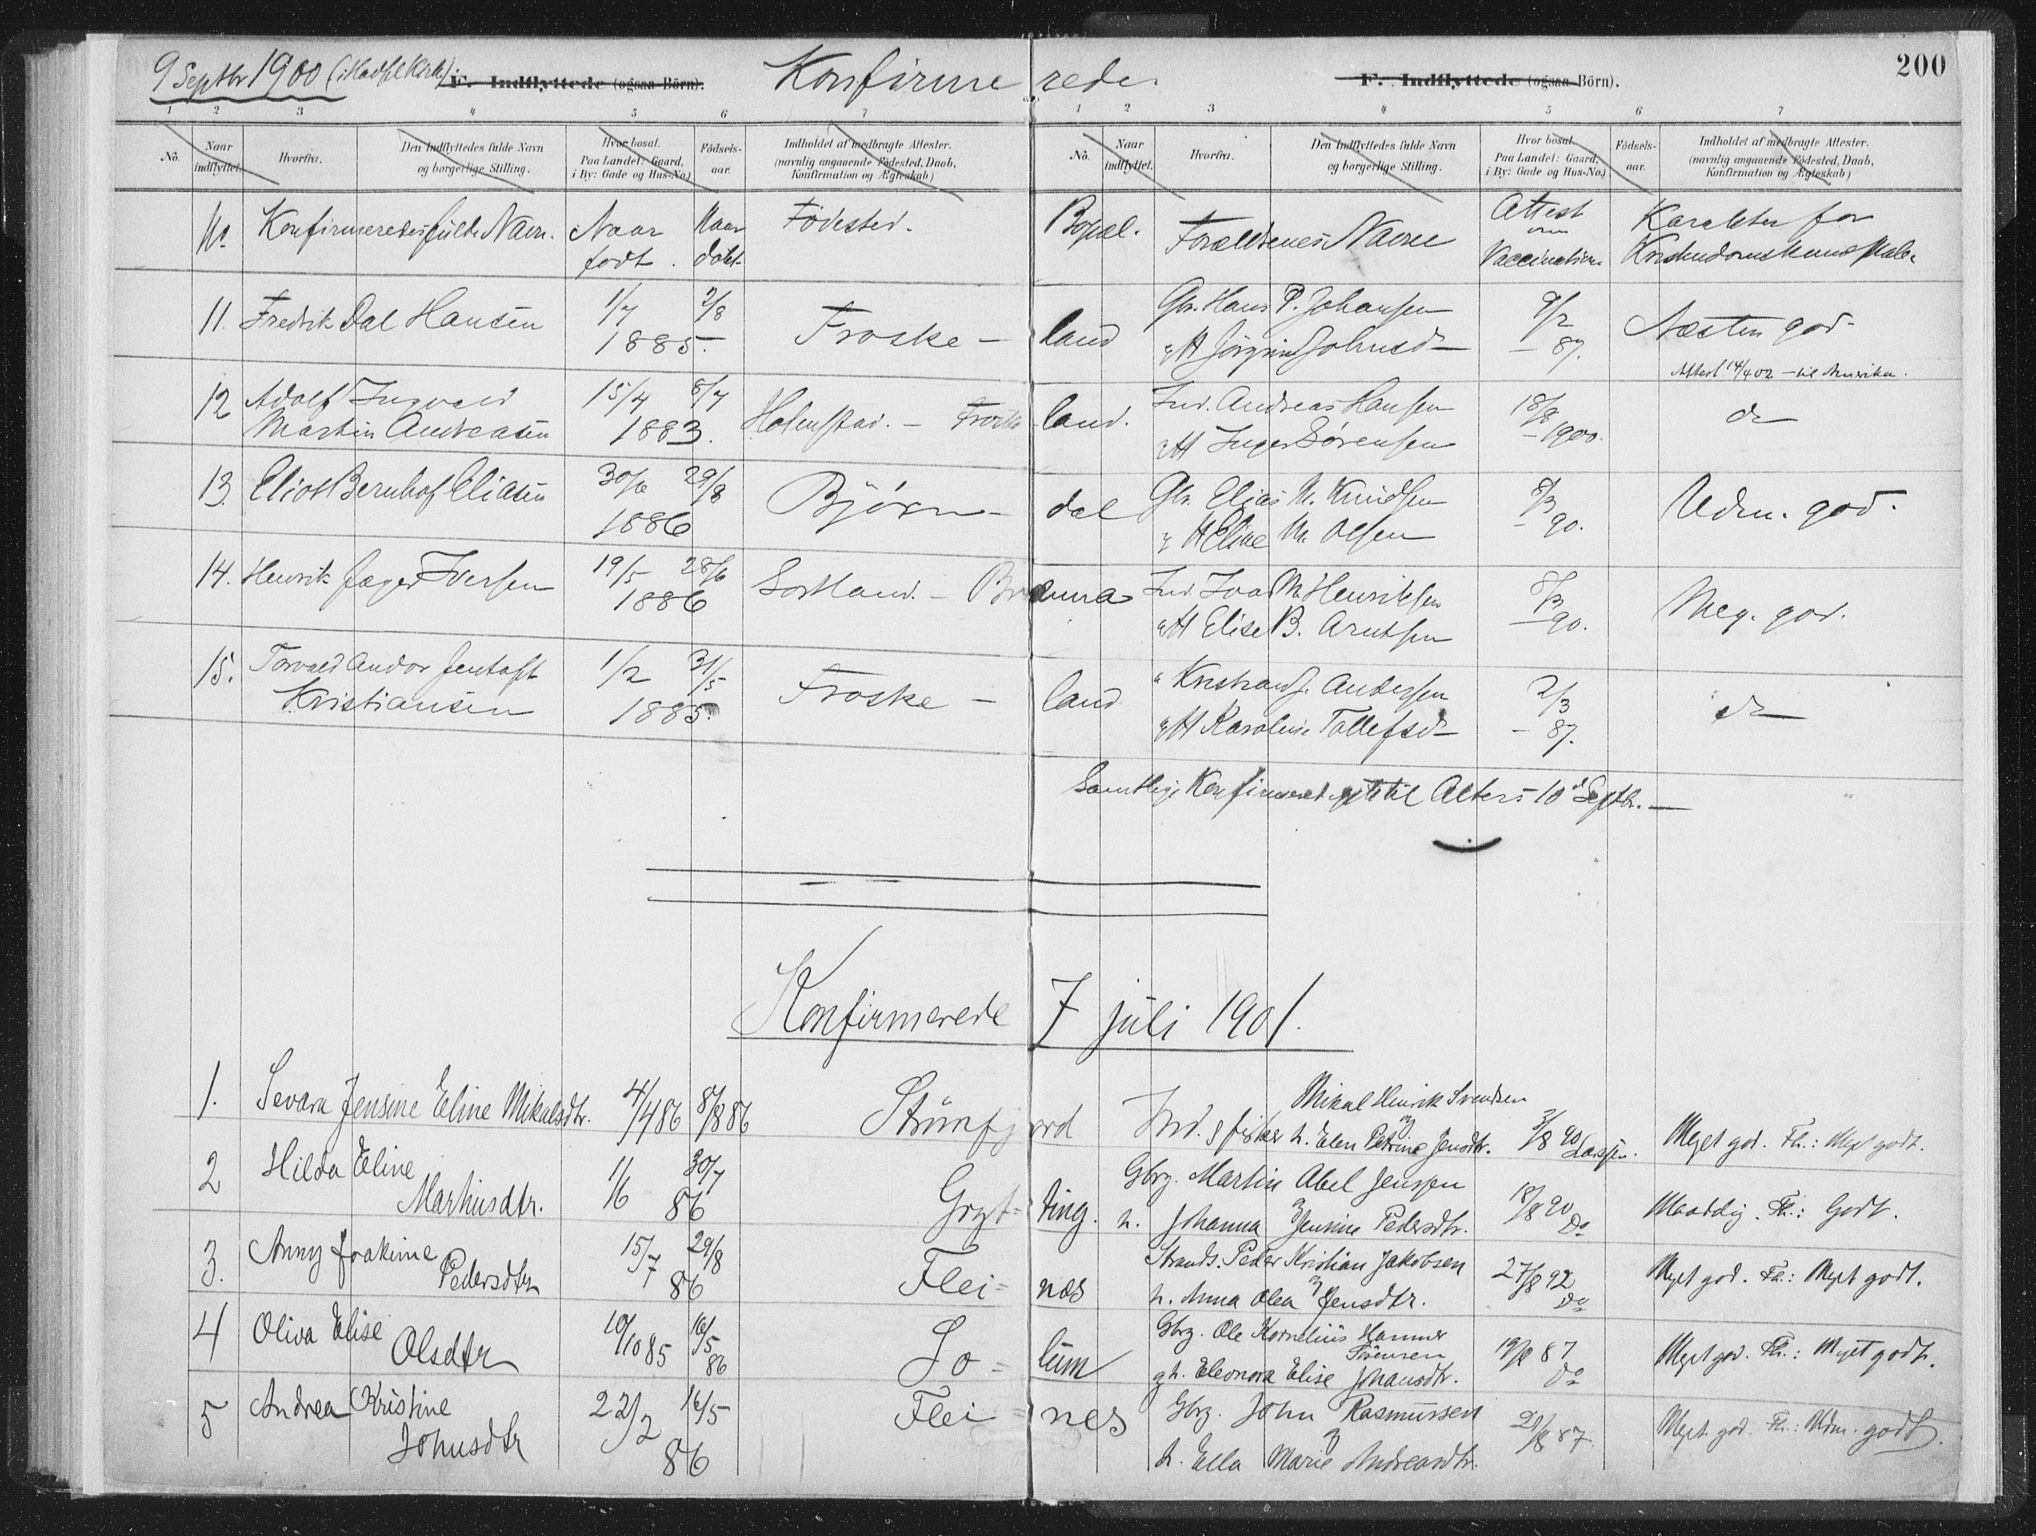 9 Septbr 1900 (i Hadsel Kirke). F. Indflyttede (ogsaa Börn). Konfirmerede. F. Indflyttede (ogsaa Börn). 200
1 2 3 4 5 6 7 1 2 3 4 5 6 7
No. Naar indflyttet. Hvorfra. Den Indflyttedes fulde Navn og borgerlige Stilling. Hvor bosat. Paa Landet: Gaard, i By: Gade og Hus-No.) Födsels-aar. Indholdet af medbragte Attester. (navnlig angaaende Födested, Daab, Konfirmation og Ægteskab)
No. Naar indflyttet. Hvorfra. Den Indflyttedes fulde Navn og borgerlige Stilling. Hvor bosat. Paa Landet: Gaard, i By: Gade og Hus-No.) Födsels-aar. Indholdet af medbragte Attester. (navnlig angaaende Födested, Daab, Konfirmation og Ægteskab)
No. Konfirmeredes fulde Navn. Naar Naar Födested. Bopæl. Forældrenes Navne Attest om Karakter for
födt. döbt. Vaccination Kristendomskundskab.
11. Fredrik Dal Hansen 1/7 2/8 Froske- land Gbr. Hans P. Johansen 9/2 Næsten god.
1885. Jörgine Johnsd. 87.
Attest 14/4 02 – til Amerika.
12 Adolf Ingvald 15/4 8/7 Holmstad. – Froske land. Ind. Andreas Hansen 18/8 do
Martin Andreasen 1883. Inger Sörensen 1900.
13. Eliot Bernhof Eliasen 30/6 29/8 Björn- dal Gbr. Elias M. Knudsen 8/3 Udm. god.
1886 Eline M. Olsen 90.
14. Henrik Jæger Iversen 19/5 28/6 Sortland. – Ind. Ivar M. Henriksen 8/3 Meg. god.
1886 Elise B. Arntsen 90.
15. Torvald Andor Jentoft 1/2 31/5 Froske – land Kristian J. Andersen 2/3 do
Kristiansen 1885. Karoline Tollefsd. 87.
Samtlige Konfirmerede til Alters 10d Septbr.
Konfirmerede 7 juli 1901.
1. Sevara Jensine Eline Mikalsdtr. 4/4 86 8/8 86 Strömfjord Mikal Henrik Svendsen
Ind. g fisker h. Elen Petrine Jensdtr. 3/8 90 Larssen. Meget god. Fl.: Meget godt.
2 Hilda Eline 1/6 30/7 Gryt- ting. Gbrg. Martin Abel Jenssen 18/8 90 Maadelig. Fl.: Godt.
Martiusdtr. 86 h. Johanna Jensine Pedersdtr. Do
3. Anny Joakime 15/7 29/8 Flei- næs Strands. Peder Kristian Jakobsen 27/8 92 Meget god. Fl.: Meget godt.
Pedersdtr 86 h. Anna Olea Jensdtr. Do
4 Oliva Elise 10/10 85 16/5 Jo- lum Gbrg. Ole Kornelius Hammer 19/9 87 Meget god. Fl.: Meget godt.
Olsdtr 86 gh. Eleonora Elise Johansdtr. Do
5 Andrea Kristine 22/2 16/5 Flei- nes Gbrg. John Rasmussen 21/8 87 Meget god. Fl.: Udm. godt.
Johnsdtr 86 h. Ella Marie Andreasdtr.